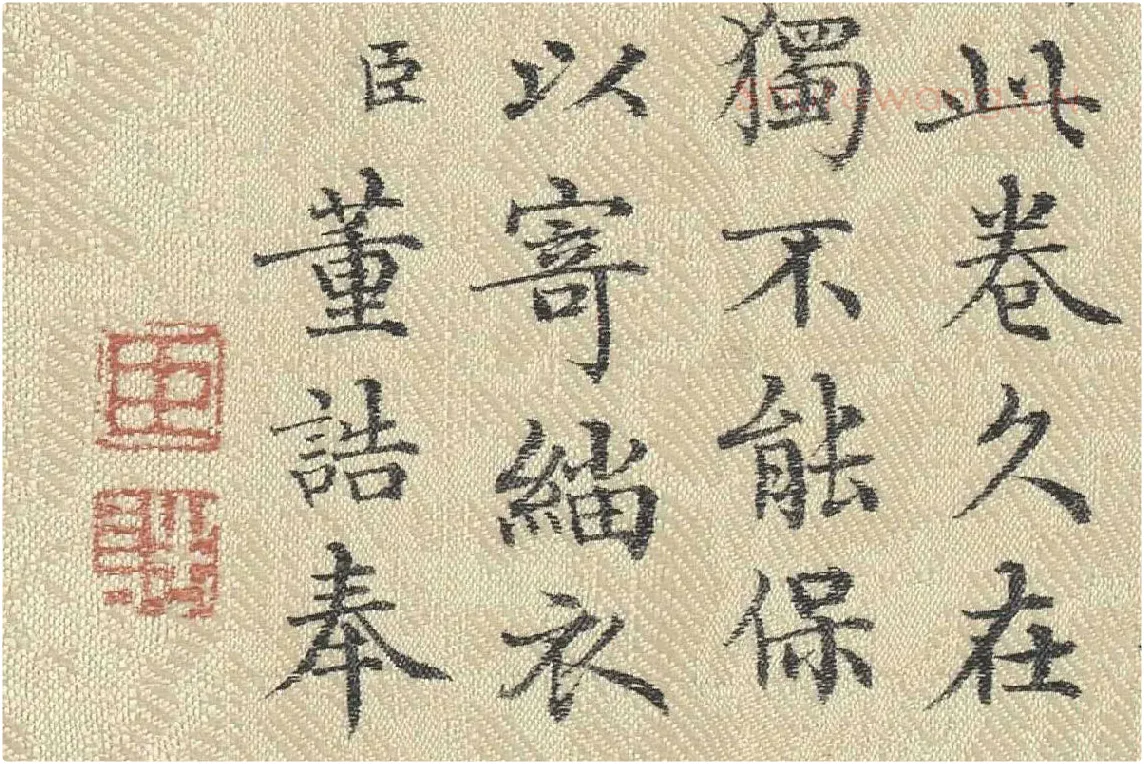 此卷久在
獨不能保
以寄緇衣
臣董誥奉
臣
誥